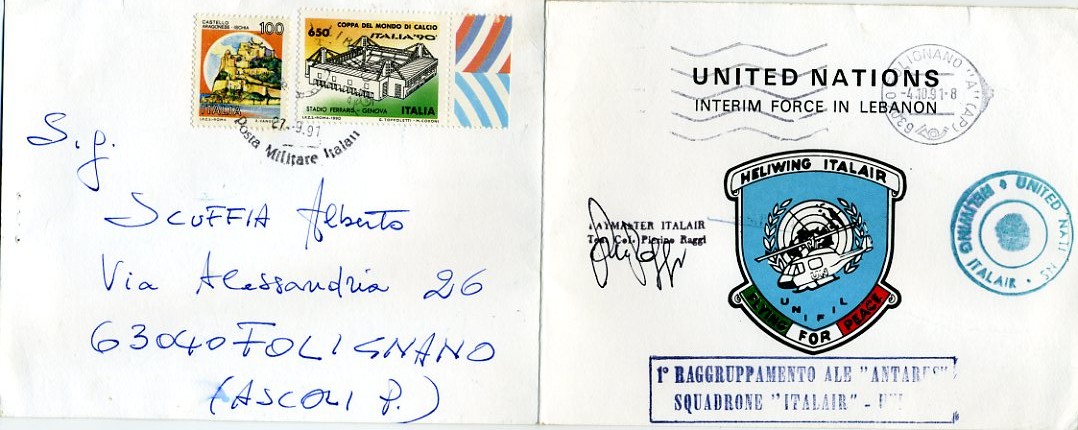 CASTELLO
ARAGONESE - ISCHIA
100
ITALIA
I.P.Z.S. - ROMA
COPPA DEL MONDO DI CALCIO
650
ITALIA '90
STADIO FERRARIS - GENOVA
ITALIA
I.P.Z.S. - ROMA - 1990
27-9.91
Posta Militare Italian
S.g.
SCUFFIA Alberto
Via Alessandria 26
63040 FOLIGNANO
(ASCOLI P.)
UNITED NATIONS
INTERIM FORCE IN LEBANON
LIGNANO "A" (AP)
-4.10.91-8
HELIWING ITALAIR
UNIFIL
FLYING FOR PEACE
AYMASTER ITALAIR
Ten. Col. Pierino Raggi
UNITED NATI NS
HELIWING
ITALAIR
1° RAGGRUPPAMENTO ALE "ANTARES"
SQUADRONE "ITALAIR" -